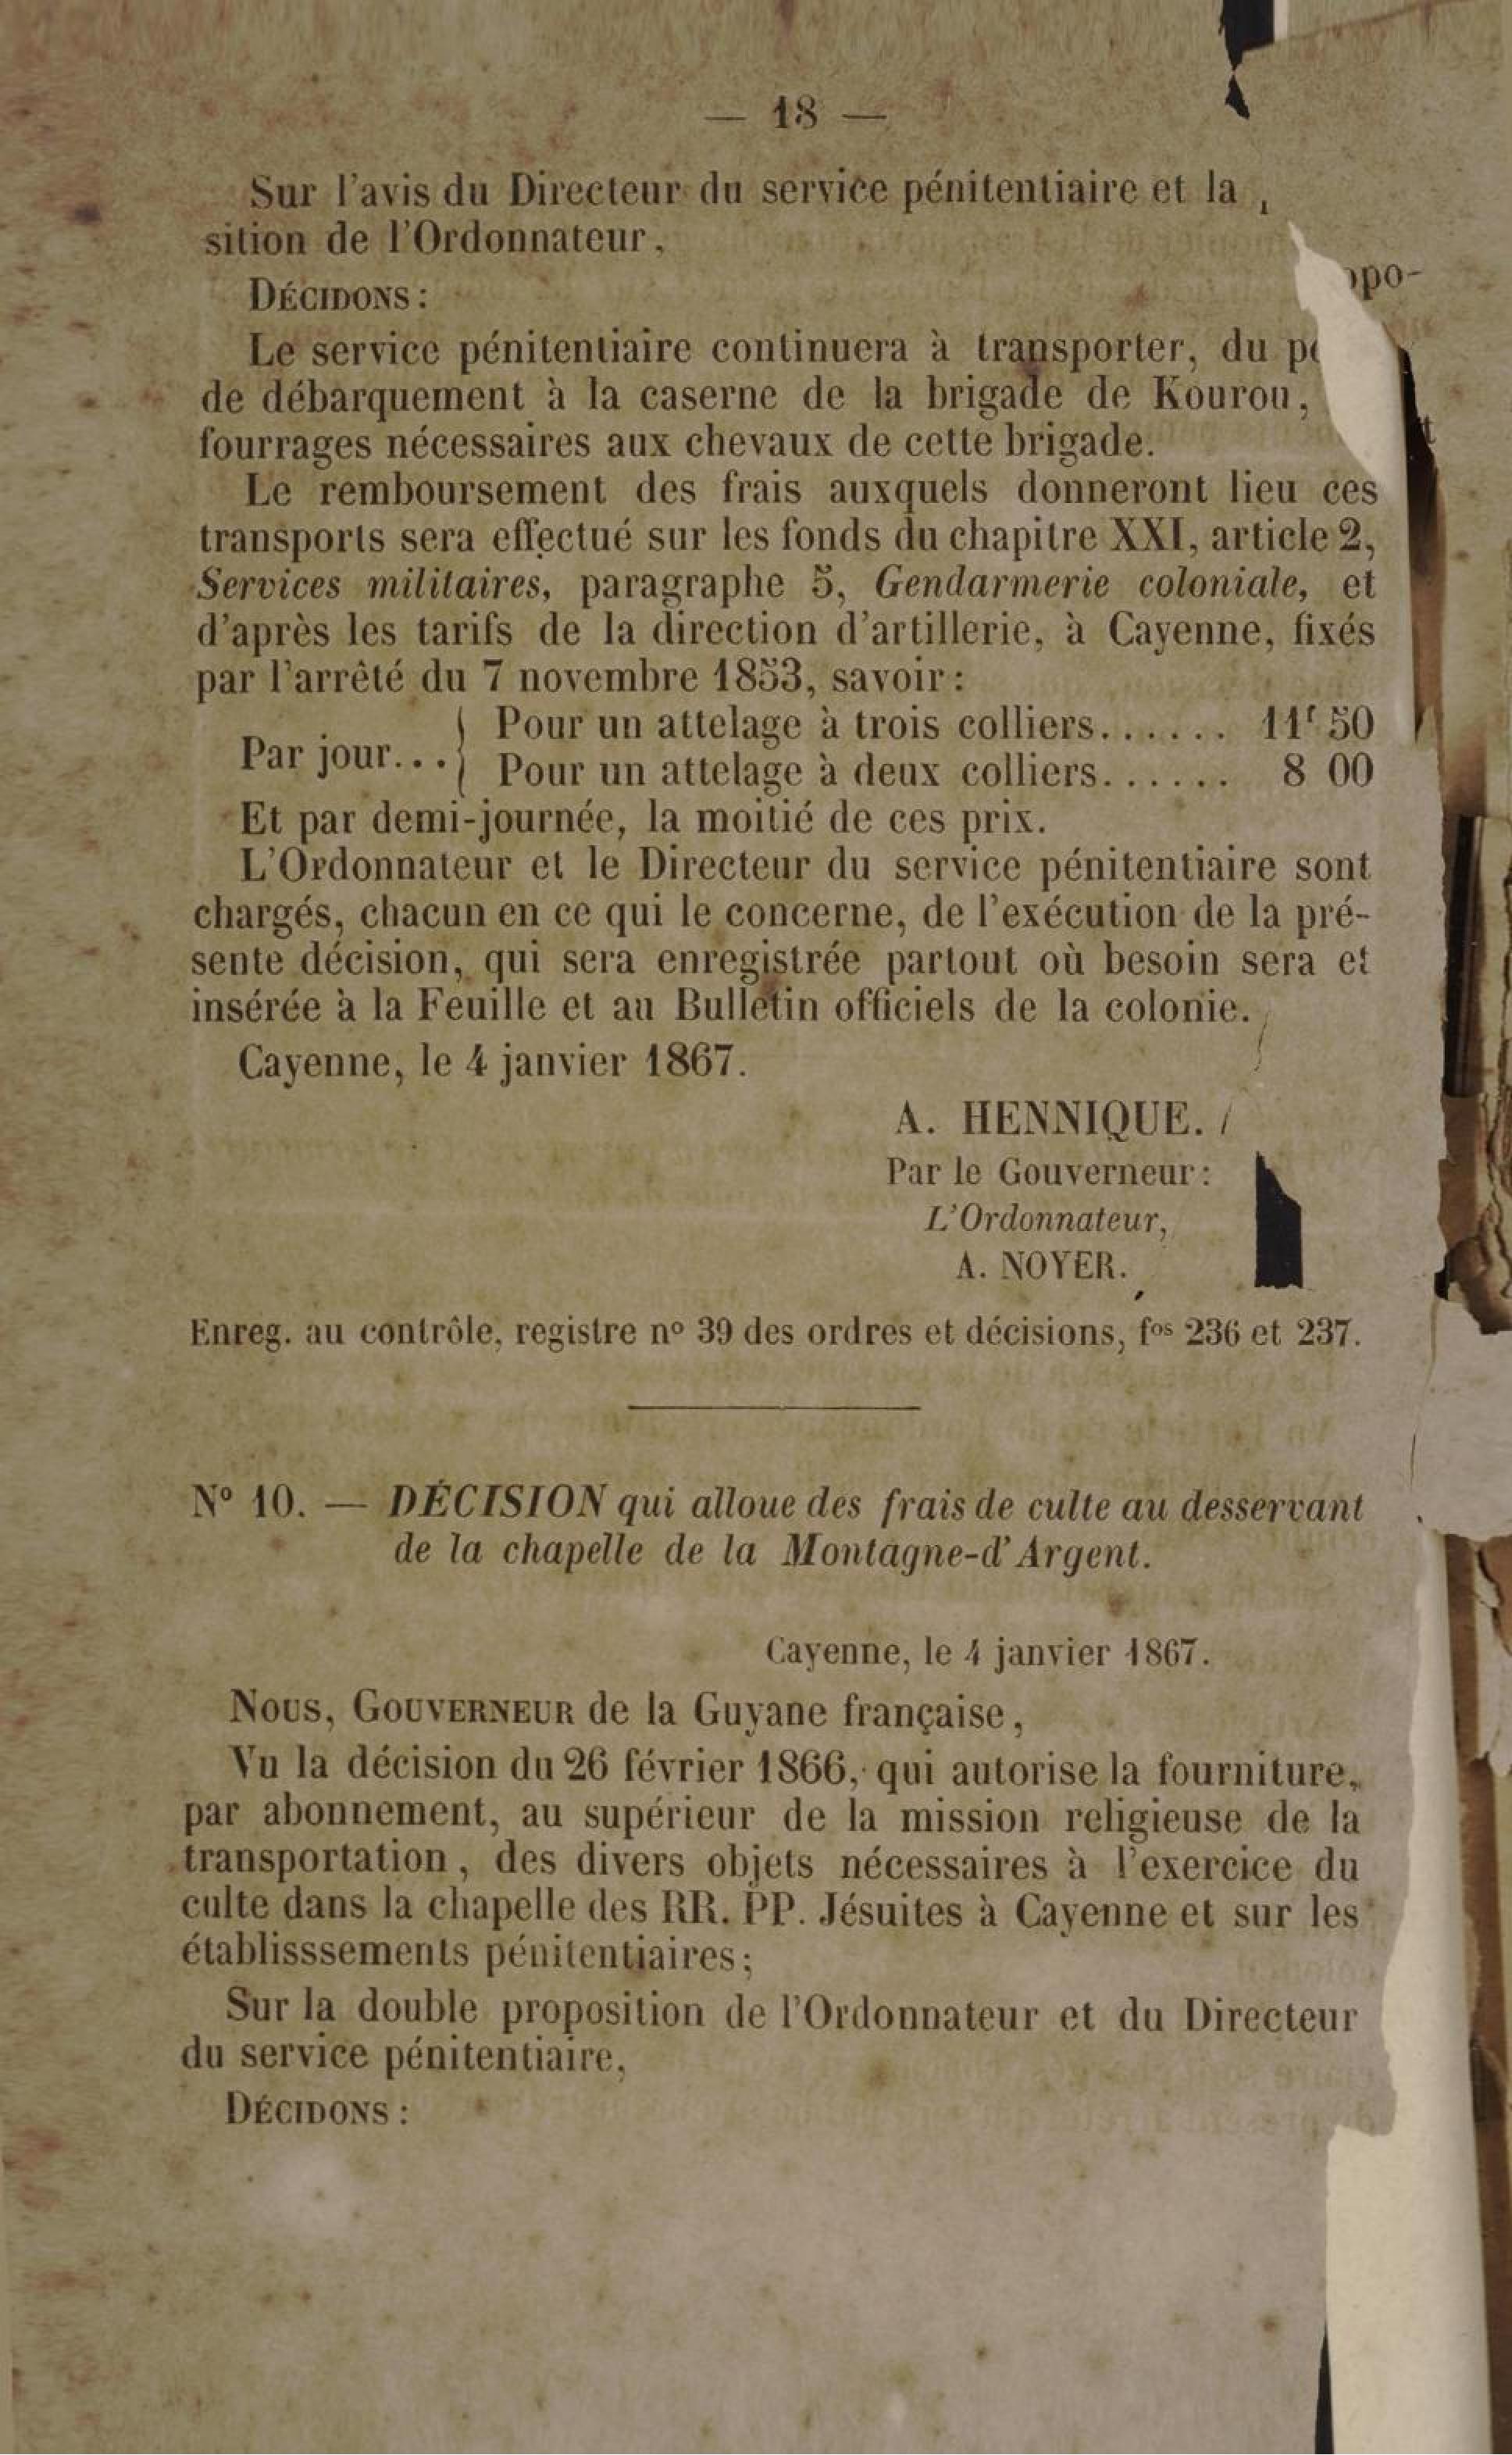 — 18 —
Sur l'avis du Directeur du service pénitentiaire et la
sition de l'Ordonnateur,
DÉCIDONS:
Le service pénitentiaire continuera à transporter, du
de débarquement à la caserne de la brigade de Kourou,
fourrages nécessaires aux chevaux de cette brigade.
Le remboursement des frais auxquels donneront lieu ces
transports sera effectué sur les fonds du chapitre XXI, article 2,
Services militaires, paragraphe 5, Gendarmerie coloniale, et
d'après les tarifs de la direction d'artillerie, à Cayenne, fixés
par l'arrêté du 7 novembre 1853, savoir:
Par jour... { Pour un attelage à trois colliers....... 11f 50
Pour un attelage à deux colliers....... 8 00
Et par demi-journée, la moitié de ces prix.
L'Ordonnateur et le Directeur du service pénitentiaire sont
chargés, chacun en ce qui le concerne, de l'exécution de la pré-
sente décision, qui sera enregistrée partout où besoin sera et
insérée à la Feuille et au Bulletin officiels de la colonie.
Cayenne, le 4 janvier 1867.
A. HENNIQUE.
Par le Gouverneur:
L'Ordonnateur,
A. NOYER.
Enreg. au contrôle, registre nº 39 des ordres et décisions, fos 236 et 237.
Nº 10. — DÉCISION qui alloue des frais de culte au desservant
de la chapelle de la Montagne-d'Argent.
Cayenne, le 4 janvier 1867.
NOUS, GOUVERNEUR de la Guyane française,
Vu la décision du 26 février 1866, qui autorise la fourniture,
par abonnement, au supérieur de la mission religieuse de la
transportation, des divers objets nécessaires à l'exercice du
culte dans la chapelle des RR. PP. Jésuites à Cayenne et sur les
établisssements pénitentiaires;
Sur la double proposition de l'Ordonnateur et du Directeur
du service pénitentiaire,
DÉCIDONS: